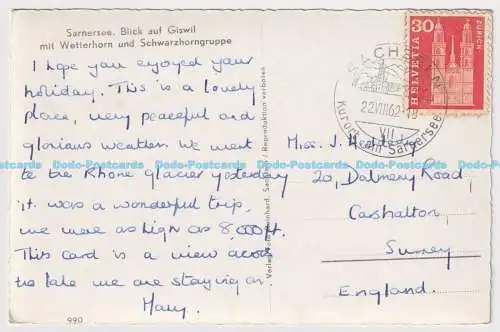 Sarnersee. Blick auf Giswil
mit Wetterhorn und Schwarzhorngruppe
I hope you enjoyed your
holiday. This is a lovely
place, very peaceful and
glorious weather. We went
to the Rhone glacier yesterday
it was a wonderful trip,
we were as high as 8,000ft.
This card is a view across
the lake we are staying on
Mary.
990
Reproduktion verboten
30
HELVETIA
ZÜRICH
SACHSELN
22.VIII.62-18
VII
Kurort am Sarnersee
Miss. J.
20, Dalmeny Road,
Carshalton,
Surrey
England.
Dodo-Postcards Dodo-Postcards Dodo-Postcards Dodo-Postcards